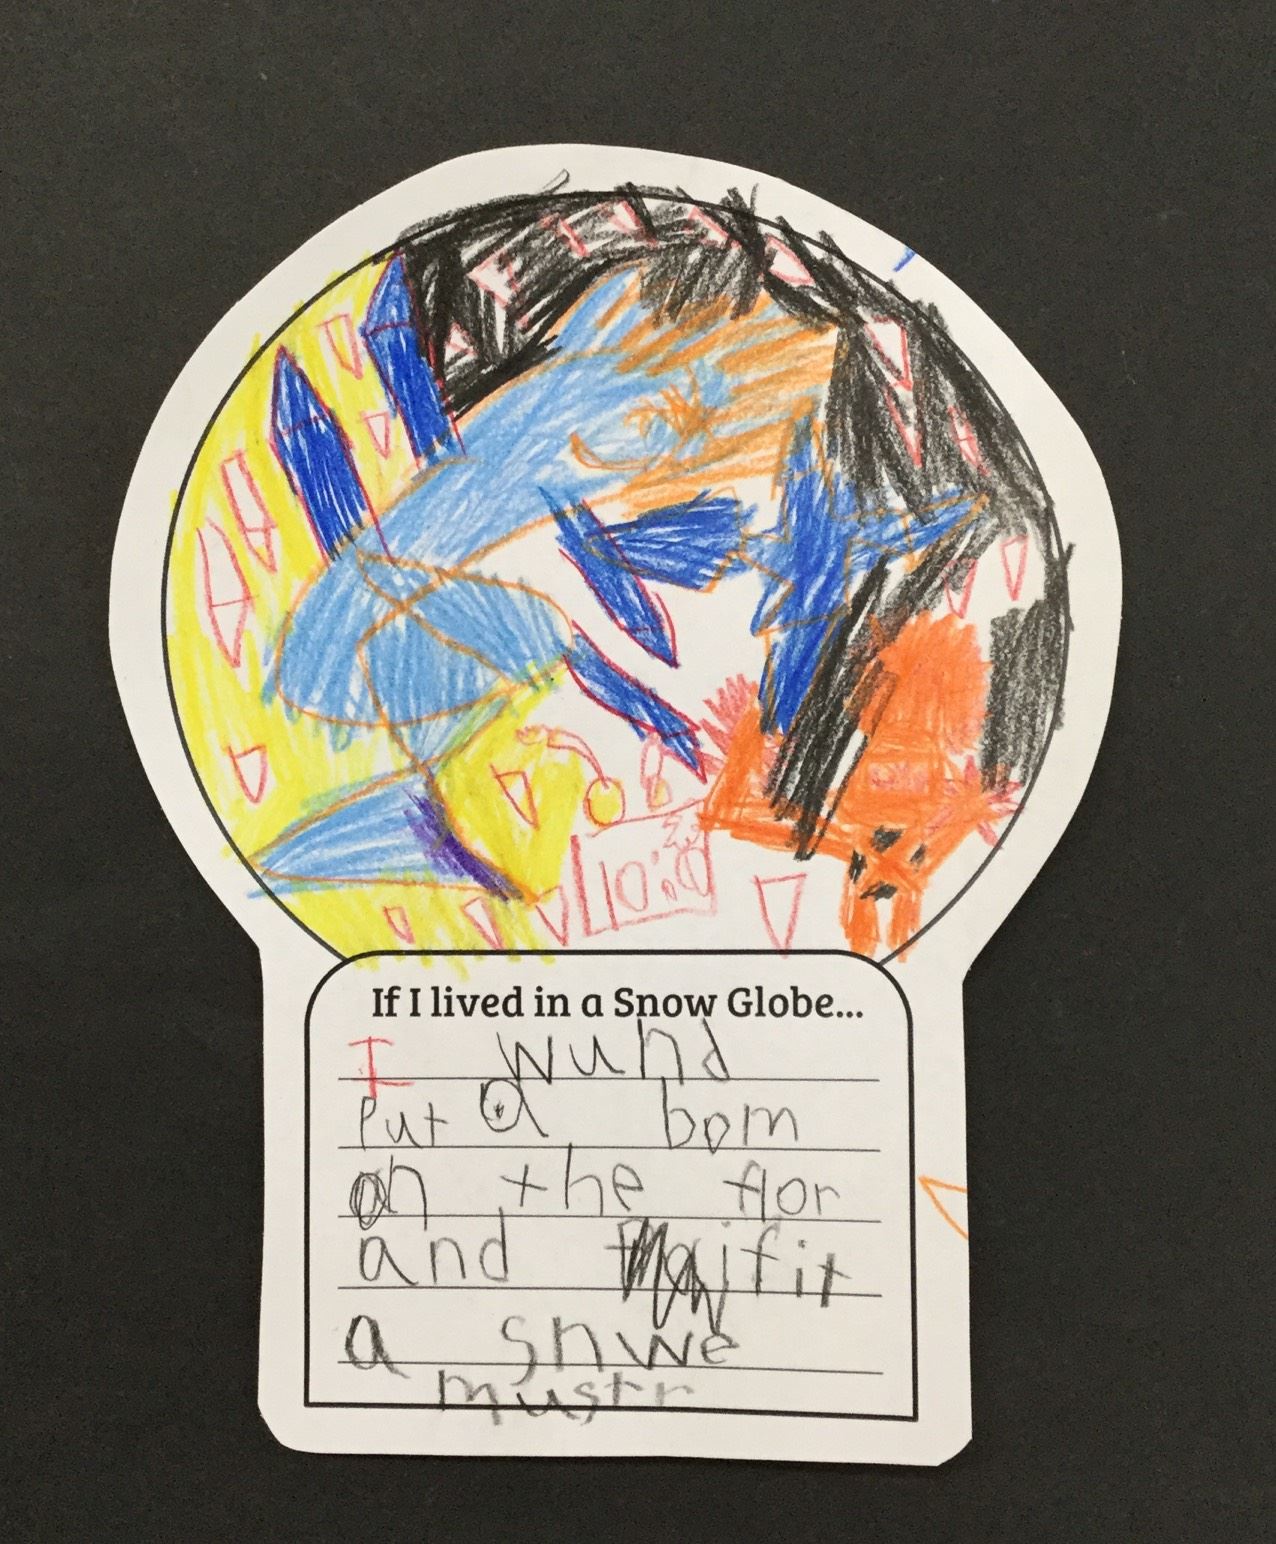 10:0
If I lived in a Snow Globe...
I wuhd
Put a bom
on the flor
and fifit
a snwe
mustr